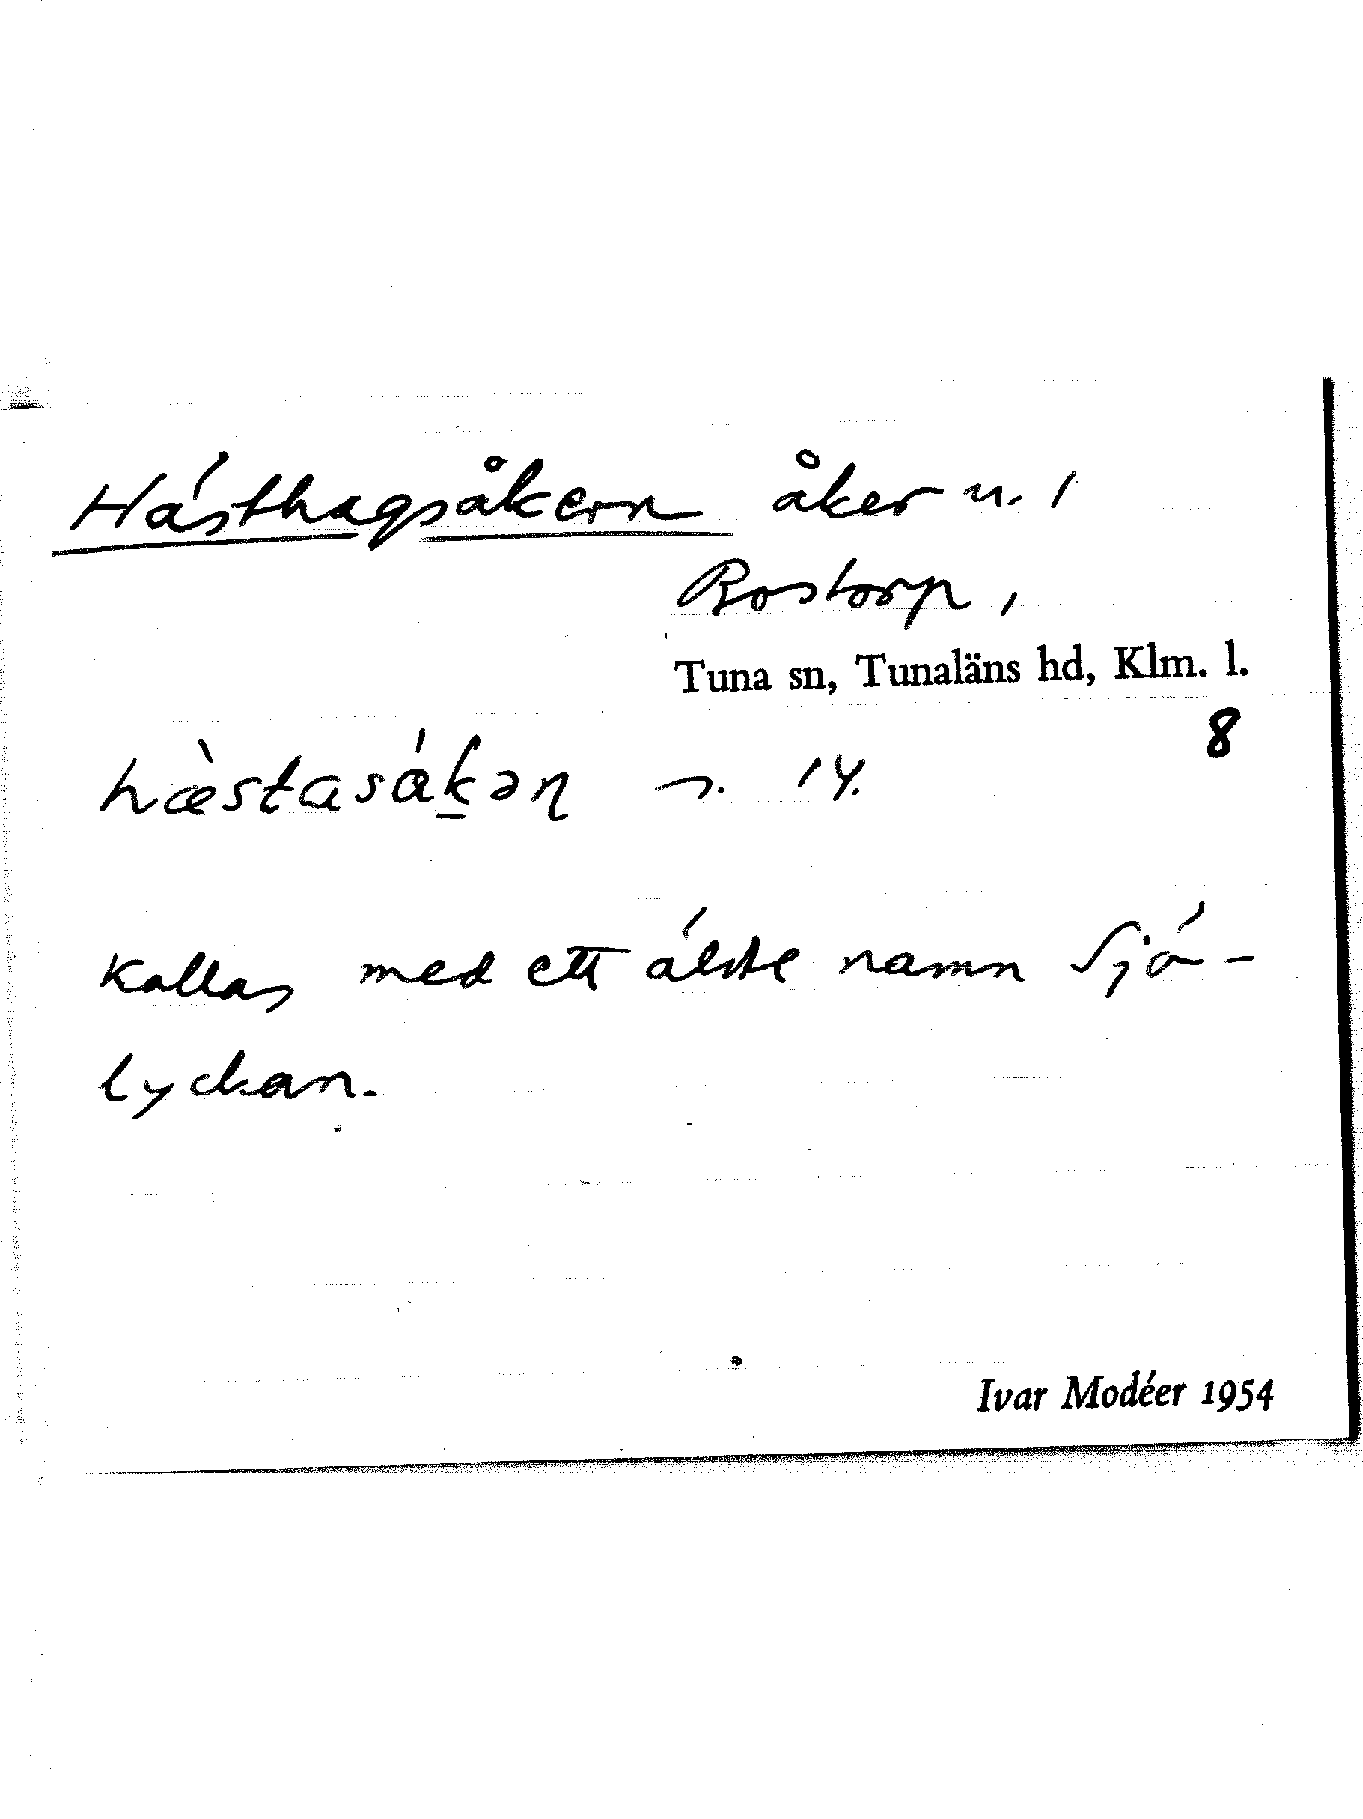 Hästhagsåkern åker n. 1
Rostorp,
Tuna sn, Tunaläns hd, Klm. l.
8
hæ̀stasåḱəṇ 14.
Kallas med ett äldre namn Sjö-
lyckan.
Ivar Modéer 1954